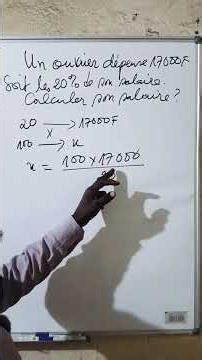 Un ouvrier dépense 17000F
Soit les 20% de son salaire.
Calculer son salaire ?
20 → 17000F
x
100 → x
x = 100 x 17000